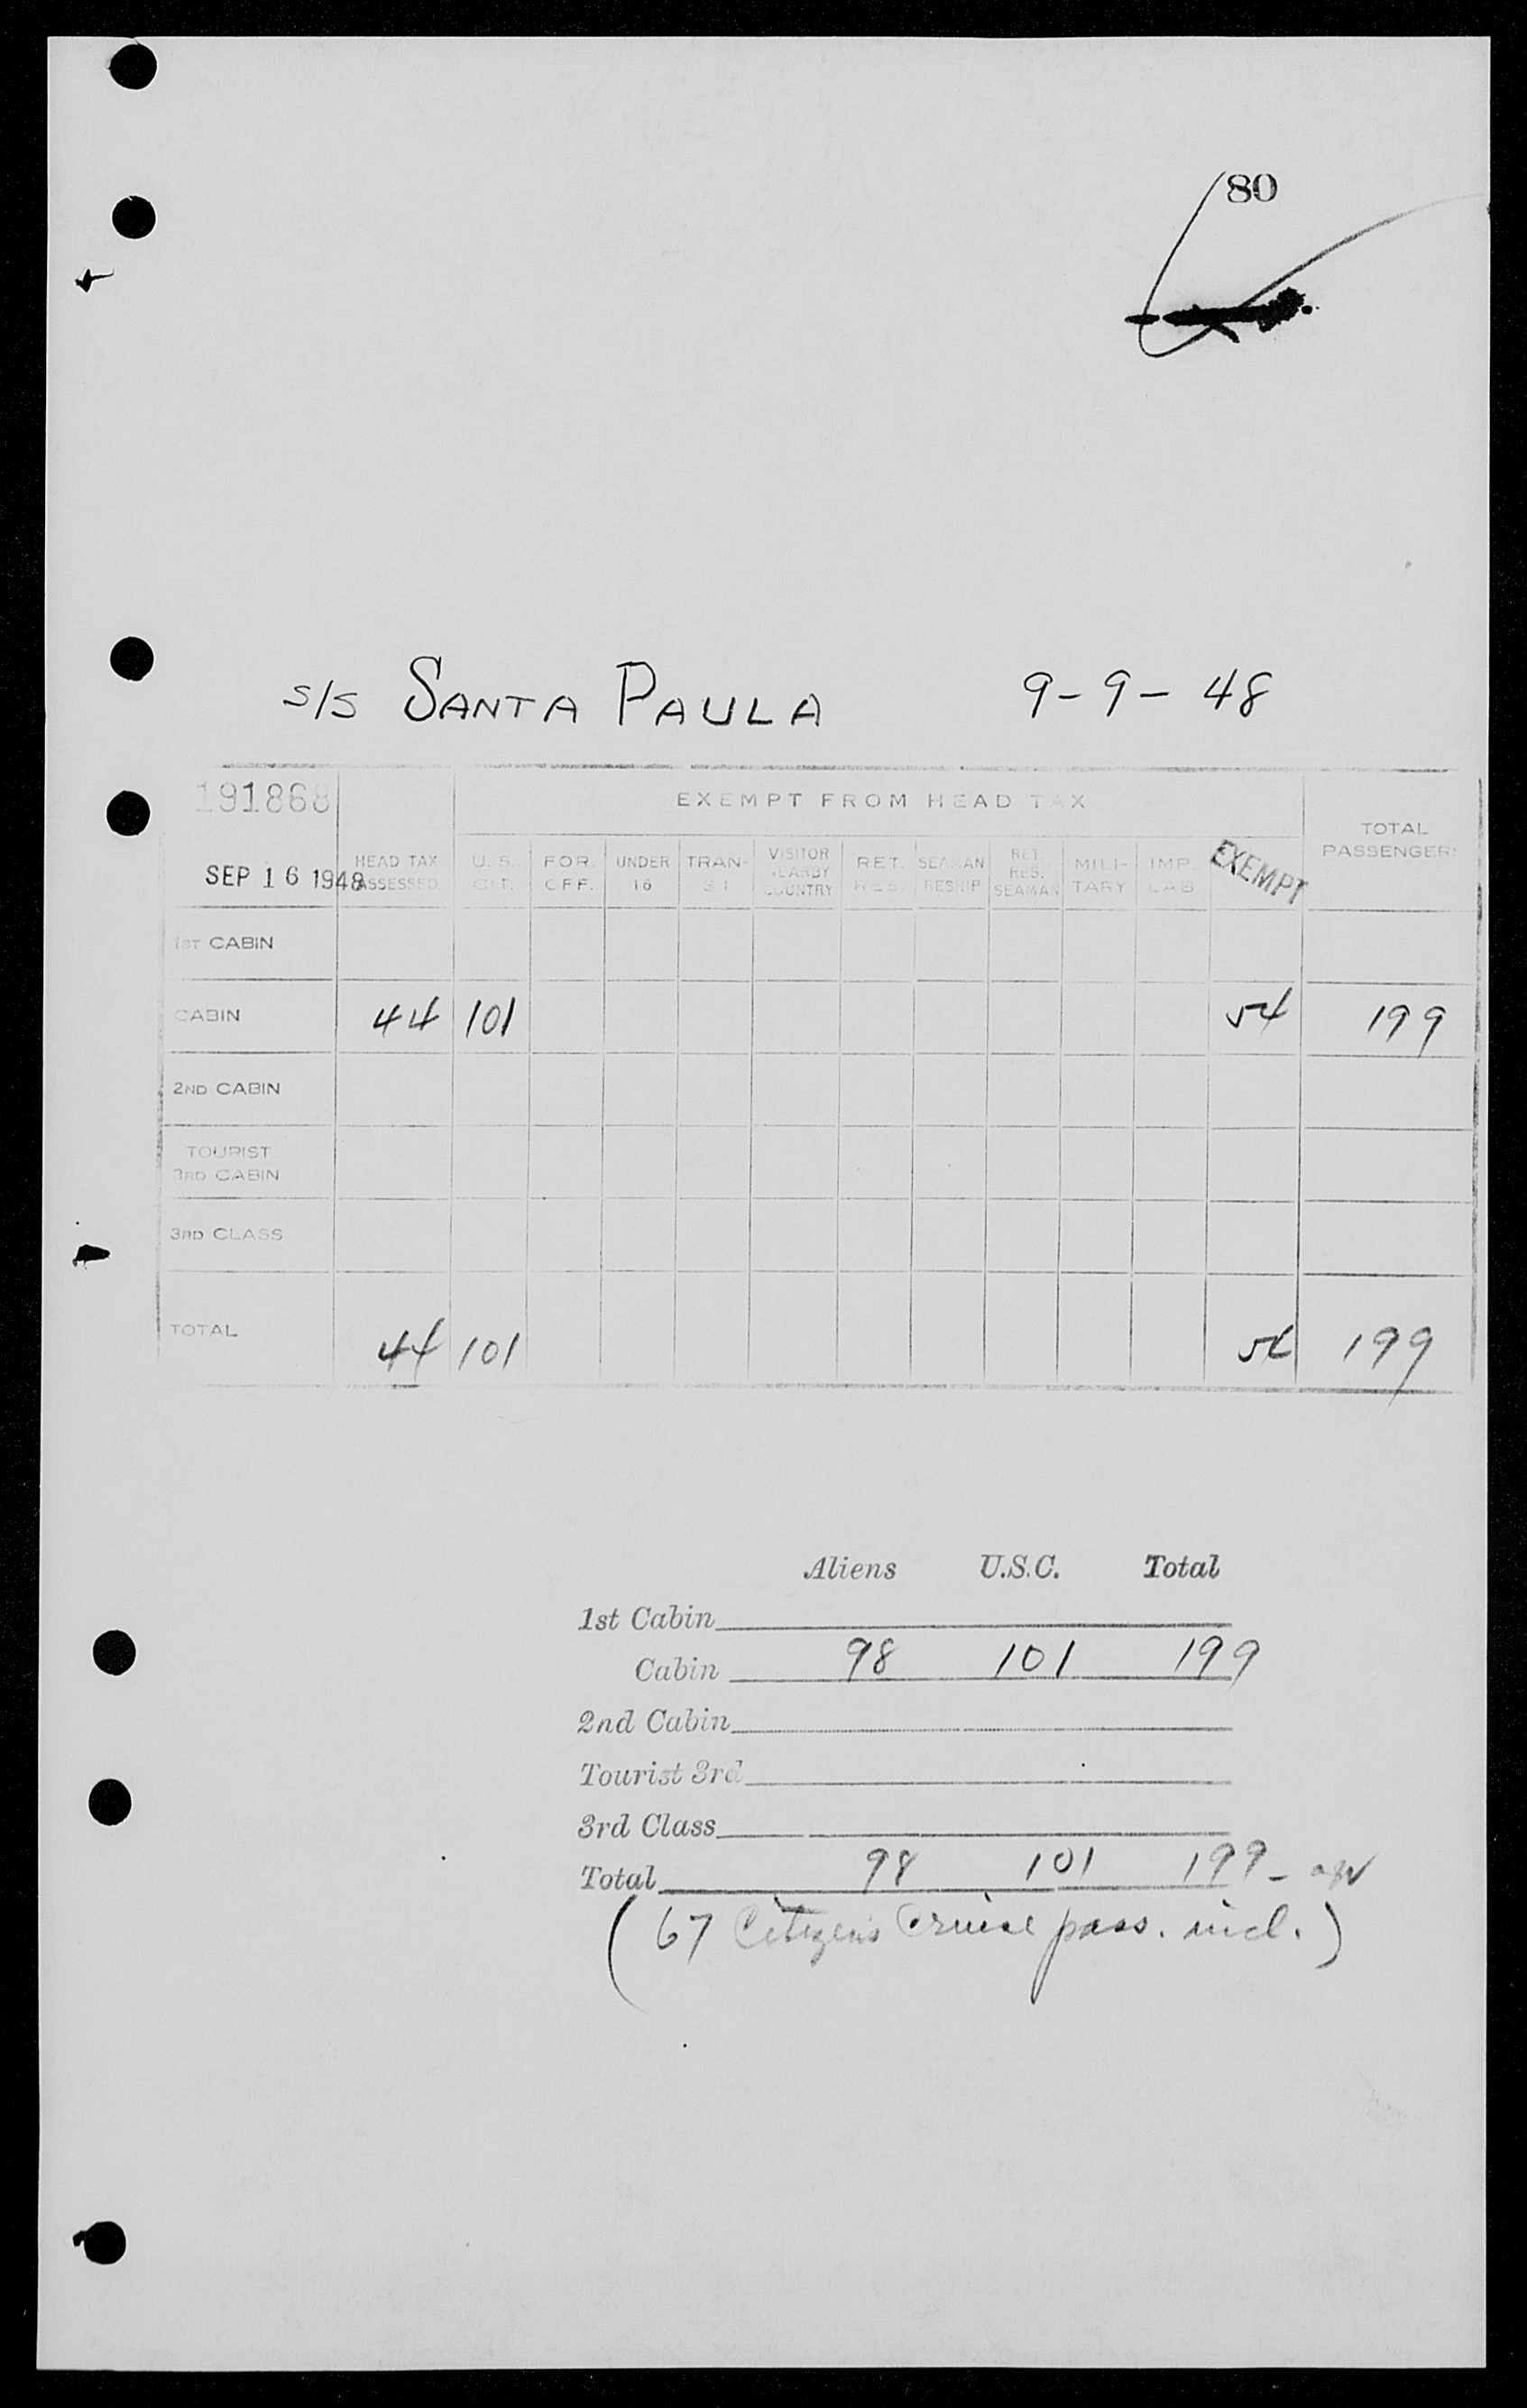 80
S/S SANTA PAULA 9-9-48
191868
EXEMPT FROM HEAD TAX
SEP 16 1948
HEAD TAX ASSESSED
U.S. CIT.
FOR. OFF.
UNDER 16
TRAN-SIT
VISITOR NEARBY COUNTRY
RET. RES.
SEAMAN RESHIP
RET. RES. SEAMAN
MILI-TARY
IMP. LAB
EXEMPT
TOTAL PASSENGERS
1ST CABIN
CABIN 44 101 54 199
2ND CABIN
TOURIST
3RD CABIN
3RD CLASS
TOTAL 44 101 54 199
Aliens U.S.C. Total
1st Cabin
Cabin 98 101 199
2nd Cabin
Tourist 3rd
3rd Class
Total 98 101 199 -
(67 Citizens Cruise pass. incl.)